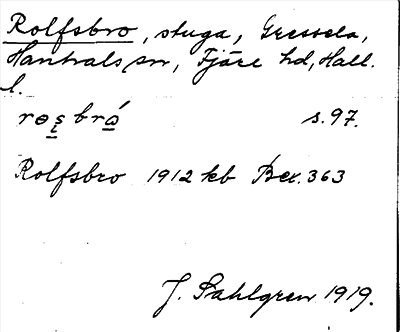 Rolfsbro, stuga, Gressela,
Hanhals sn, Fjäre hd, Hall.
l.
s. 97.
Rolfsbro 1912 kb Bex. 363
J. Sahlgren 1919.